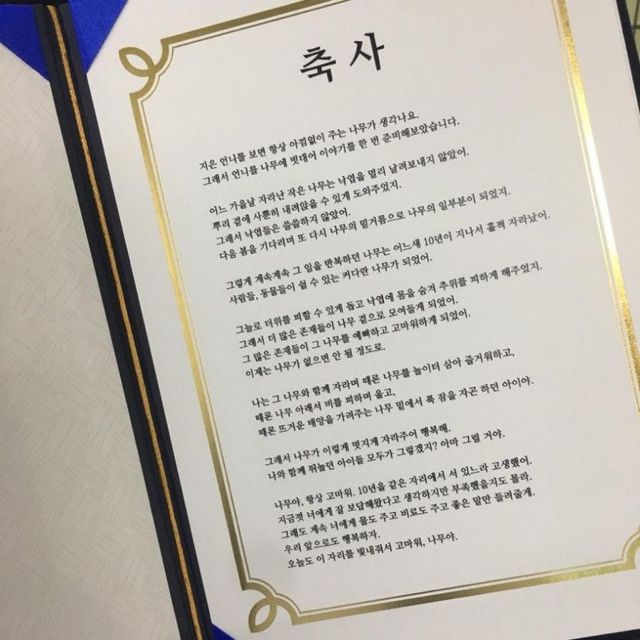 축 사
지은 언니를 보면 항상 아낌없이 주는 나무가 생각나요.
그래서 언니를 나무에 빗대어 이야기를 한 번 준비해보았습니다.
어느 가을날 자라난 작은 나무는 낙엽을 멀리 날려보내지 않았어.
뿌리 곁에 사뿐히 내려앉을 수 있게 도와주었지.
그래서 낙엽들은 쓸쓸하지 않았어.
다음 봄을 기다리며 또 다시 나무의 밑거름으로 나무의 일부분이 되었지.
그렇게 계속계속 그 일을 반복하던 나무는 어느새 10년이 지나서 훌쩍 자라났어.
사람들, 동물들이 쉴 수 있는 커다란 나무가 되었어.
그늘로 더위를 피할 수 있게 돕고 낙엽에 몸을 숨겨 추위를 피하게 해주었지.
그래서 더 많은 존재들이 나무 곁으로 모여들게 되었어.
그 많은 존재들이 그 나무를 예뻐하고 고마워하게 되었어.
이제는 나무가 없으면 안 될 정도로.
나는 그 나무와 함께 자라며 때론 나무를 놀이터 삼아 즐거워하고,
때론 나무 아래서 비를 피하며 울고,
때론 뜨거운 태양을 가려주는 나무 밑에서 푹 잠을 자곤 하던 아이야.
그래서 나무가 이렇게 멋지게 자라주어 행복해.
나와 함께 뛰놀던 아이들 모두가 그렇겠지? 아마 그럴 거야.
나무야, 항상 고마워. 10년을 같은 자리에서 서 있느라 고생했어.
지금껏 너에게 잘 보답해왔다고 생각하지만 부족했을지도 몰라.
그래도 계속 너에게 물도 주고 비료도 주고 좋은 말만 들려줄게.
우리 앞으로도 행복하자.
오늘도 이 자리를 빛내줘서 고마워, 나무야.